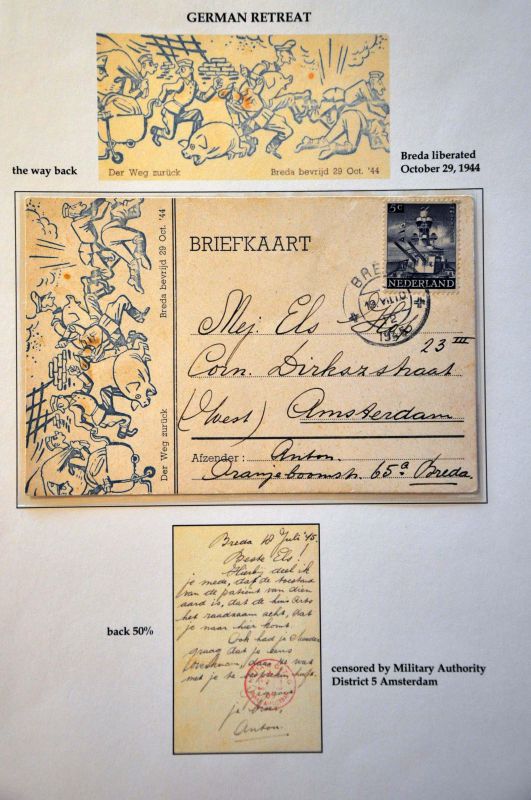 GERMAN RETREAT
Der Weg zurück
Breda bevrijd 29 Oct. '44
the way back
Breda liberated
October 29, 1944
Breda bevrijd 29 Oct. '44
Der Weg zurück
BRIEFKAART
5c
NEDERLAND
BRE
Mej. Els
23 III
Corn. Dirkszstraat
(West) Amsterdam
Afzender: Anton.
Oranjeboomstr. 65a Breda.
Breda 18 Juli '45.
Beste Els!
Hierbij deel ik
je mede, dat de toestand
van de patient van dien
aard is, dat de huisarts
het raadzaam acht, dat
je naar hier komt.
Ook had je Moeder
graag dat je eens
daar ze wat
met je te bespreken heeft.
je
Anton.
back 50%
censored by Military Authority
District 5 Amsterdam